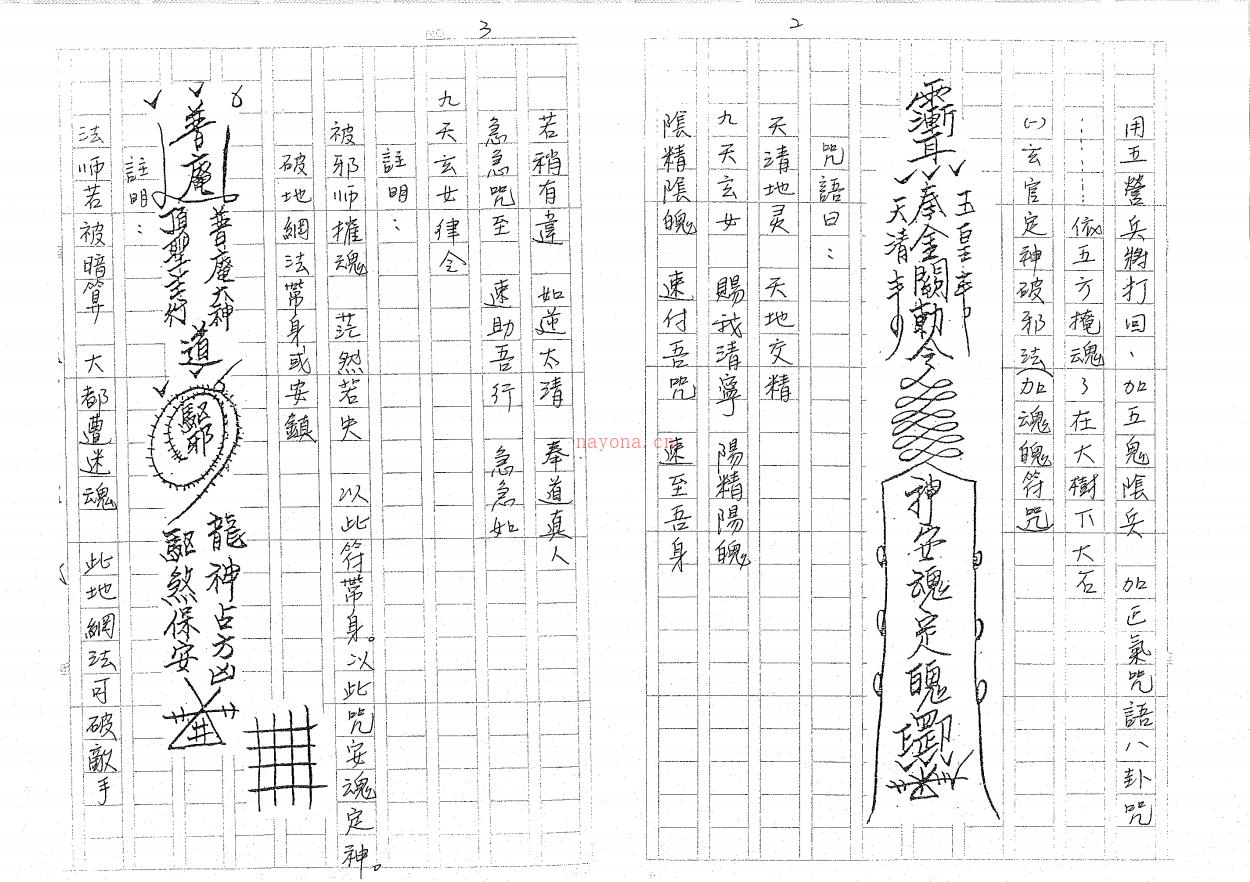 2
用五營兵將打回、加五鬼陰兵 加正氣咒語八卦咒
………依五方掩魂了在大樹下大石
(一)玄官定神破邪法(加魂魄符咒)
玉皇
奉金闕勅令
天清
神安魂定魄
咒語曰：
天清地灵 天地交精
九天玄女 賜我清寧 陽精陽魄
陰精陰魄 速付吾咒 速至吾身
NO. 3
若稍有違 如逆太清 奉道真人
急急咒至 速助吾行 急急如
九天玄女律令
註明：
被邪师摧魂 茫然若失 以此符帶身。以此咒安魂定神。
破地網法帶身或安鎮
普庵
普庵大神
頂聖主行
道
驅邪
龍神占方凶
驅煞保安
井
註明：
法师若被暗算 大都遭迷魂 此地網法可破敵手
nayona.cn